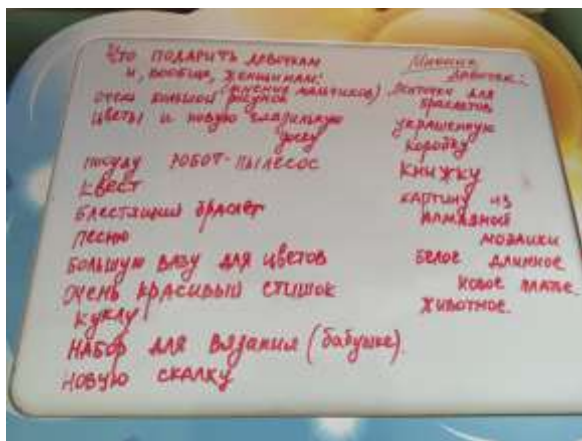 Что подарить девочкам
и, вообще, женщинам:
(мнение мальчиков)
очень большой рисунок
цветы и новую гладильную
доску
посуду робот-пылесос
квест
блестящий браслет
песню
большую вазу для цветов
очень красивый стишок
куклу
набор для вязания (бабушке).
новую скалку
Мнение
девочек:
для
браслетов
украшенную
коробку
книжку
картину из
алмазной
мозаики
белое длинное
новое платье.
животное.